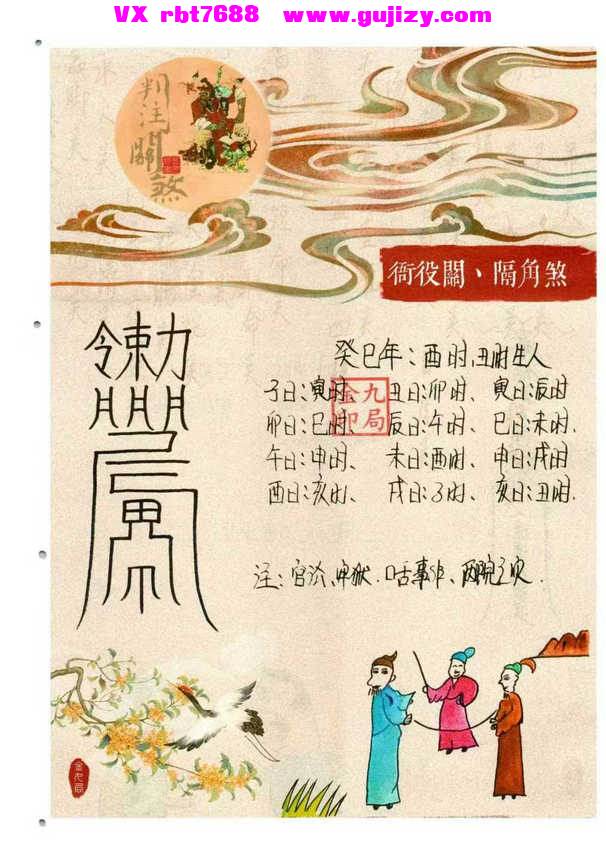 VX rbt7688 www.gujizy.com
判注關煞
衙役關、隔角煞
敕令
癸巳年:酉时,丑时生人
子日:寅时、丑日:卯时、寅日:辰时
卯日:巳时、辰日:午时、巳日:未时.
午日:申时、未日:酉时、申日:戌时
酉日:亥时、戌日:子时、亥日:丑时.
九局金印
注:官讼、牢狱.口舌事非、
金九局